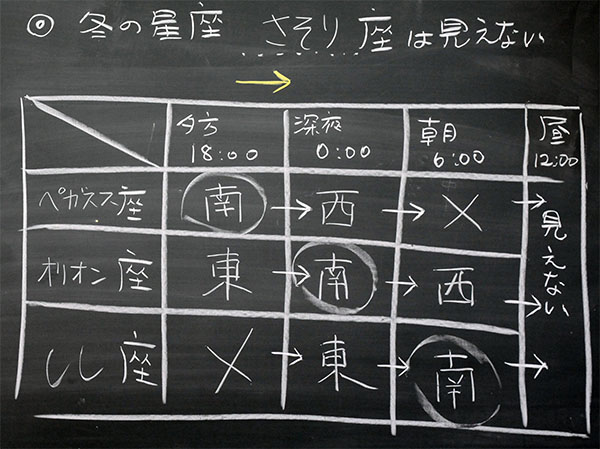 ◎ 冬の星座 さそり座は見えない
→
夕方 18:00 深夜 0:00 朝 6:00 昼 12:00
ペガスス座 南 → 西 → × → 見えない
オリオン座 東 → 南 → 西 →
しし座 × → 東 → 南 →